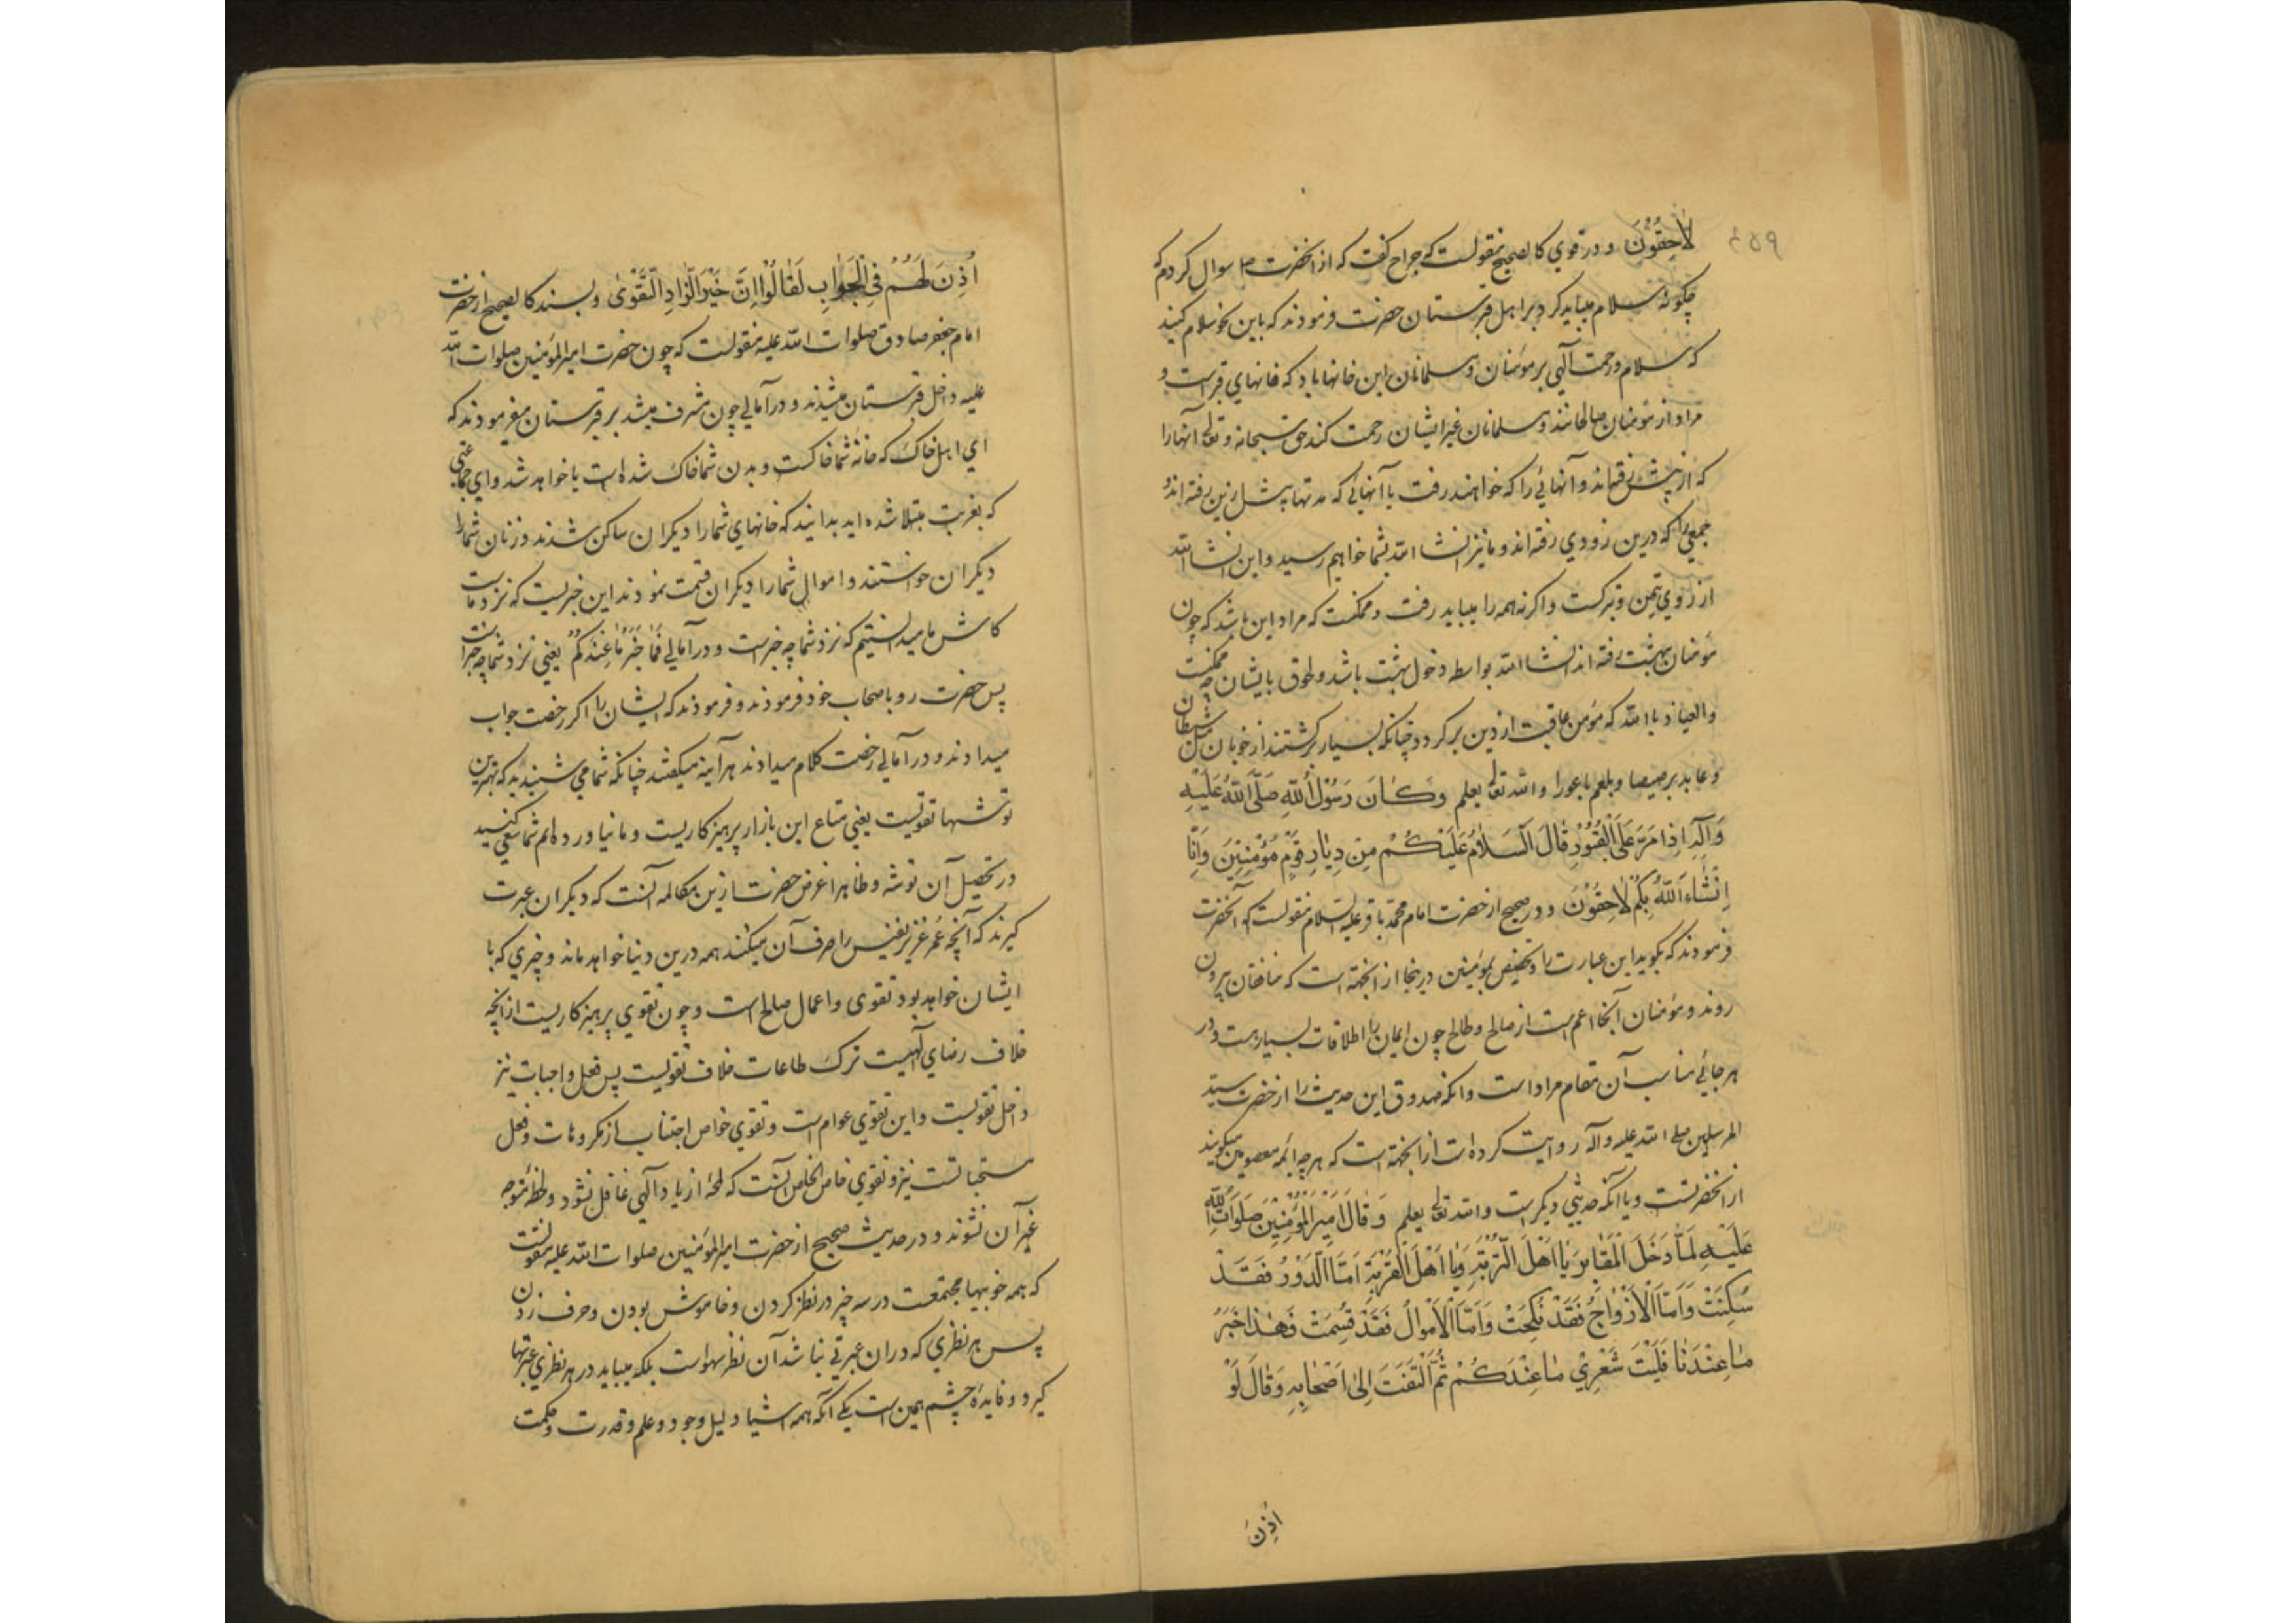 ۴۵۹
لَاحِقُونَ و در قوي كالصحيح منقولست كه جراح كفت كه از انحضرت ص سوال كردم كه
چكونه سلام ميبايد كرد بر اهل قبرستان حضرت فرمودند كه باين نحو سلام كنيد
كه سلام و رحمت آلهي بر مؤمنان و مسلمانان اين خانها باد كه خانهاي قبراست و
مراد از مؤمنان صالحانند و مسلمانان غير ايشان رحمت كند حق سبحانه و تعالى آنها را
كه از پيش رفته‌اند و آنهائي را كه خواهند رفت يا آنهائي كه مدتها پيش ازين رفته اند و
جمعي را كه درين زودي رفته اند و ما نيز انشا الله بشما خواهيم رسيد و اين انشا الله
از روي تيمن و تبركست و اكرنه همه را ميبايد رفت و ممكنست كه مراد اين باشد كه چون
مؤمنان ببهشت رفته اند انشا الله بواسطه دخول بهشت باشد و لحوق بايشان چه ممكنست
والعياذ بالله كه مؤمن عاقبت از دين بر كردد چنانكه بسيار بركشتند از خوبان مثل شيطان
و عابد برصيصا و بلعم باعورا والله تعالى يعلم وَكَانَ رَسُوْلُ اللّٰهِ صَلَّى اللّٰهُ عَلَيْهِ
وَآلِهِ اِذَا مَرَّ عَلَى الْقُبُوْرِ قَالَ اَلسَّلَامُ عَلَيْكُمْ مِنْ دِيَارِ قَوْمٍ مُؤْمِنِيْنَ وَاِنَّا
اِنْشَاءَ اللّٰهُ بِكُمْ لَاحِقُوْنَ و در صحيح از حضرت امام محمد باقر عليه السلام منقولست كه آنحضرت
فرمودند كه بكويد اين عبارت را و تخصيص بمؤمنين درينجا از انجهة است كه منافقان بيرون
روند و مؤمنان آنجا اعم است از صالح و طالح چون ايمان را اطلاقات بسيار هست و در
هر جائي مناسب آن مقام مراد است و انكه صدوق اين حديث را از حضرت سيد
المرسلين صلى الله عليه و آله روايت كرده است از انجهة است كه هر چه ائمه معصومين ميكويند
از انحضرتست و يا انكه حديثي ديكر است والله تعالى يعلم وَقَالَ اَمِيْرُ الْمُؤْمِنِيْنَ صَلَوَاتُ اللّٰهِ
عَلَيْهِ لَمَّا دَخَلَ الْمَقَابِرَ يَا اَهْلَ التُّرْبَةِ وَيَا اَهْلَ الْغُرْبَةِ اَمَّا الدُّوْرُ فَقَدْ
سُكِنَتْ وَاَمَّا الْاَزْوَاجُ فَقَدْ نُكِحَتْ وَاَمَّا الْاَمْوَالُ فَقَدْ قُسِمَتْ فَهٰذَا خَبَرُ
مَا عِنْدَنَا فَلَيْتَ شَعْرِيْ مَا عِنْدَكُمْ ثُمَّ الْتَفَتَ اِلٰى اَصْحَابِهِ وَقَالَ لَوْ
اُذِنَ
اُذِنَ لَهُمْ فِي الْجَوَابِ لَقَالُوْا اِنَّ خَيْرَ الزَّادِ التَّقْوٰى و بسند كالصحيح از حضرت
امام جعفر صادق صلوات الله عليه منقولست كه چون حضرت امير المؤمنين صلوات الله
عليه داخل قبرستان ميشدند و در آمالي چون مشرف ميشد بر قبرستان ميفرمودند كه
اي اهل خاك كه خانه شما خاكست و بدن شما خاك شده است يا خواهد شد و اي جماعتي
كه بغربت مبتلا شده ايد بدانيد كه خانهاي شما را ديكران ساكن شدند و زنان شما را
ديكران خواستند و اموال شما را ديكران قسمت نمودند اين خبريست كه نزد ماست
كاش ما ميدانستيم كه نزد شما چه خبر است و در آمالي فَمَا خَبَرُ مَا عِنْدَكُمْ يعني نزد شما چه خبر است
پس حضرت رو باصحاب خود فرمودند و فرمودند كه ايشان را اكر رخصت جواب
ميدادند و در آمالي رخصت كلام ميدادند هرآينه ميكفتند چنانكه شما مي شنيديد كه بهترين
توشها تقويست يعني متاع اين بازار پرهيزكاريست و ما نياورده‌ايم شما سعي كنيد
در تحصيل آن توشه و ظاهرا غرض حضرت ازين مكالمه آنست كه ديكران عبرت
كيرند كه آنچه عمر عزيز نفيس را صرف آن ميكنند همه درين دنيا خواهد ماند و چيزي كه با
ايشان خواهد بود تقوى و اعمال صالح است و چون تقوي پرهيزكاريست از انچه
خلاف رضاي آلهيست ترك طاعات خلاف تقويست پس فعل واجبات نيز
داخل تقويست و اين تقوي عوام است و تقوي خواص اجتناب از مكروهات و فعل
مستحبا تست نيز و تقوي خاص الخاص آنست كه لمحه از ياد آلهي غافل نشود و لحظه متوجه
غير آن نشوند و در حديث صحيح از حضرت امير المؤمنين صلوات الله عليه منقولست
كه همه خوبيها مجتمعست در سه چيز در نظر كردن و خاموش بودن و حرف زدن
پس هر نظري كه در ان عبرتي نباشد آن نظر سهو است بلكه ميبايد در هر نظري عبرتها
كيرد و فايده چشم همين است يكي آنكه همه اشيا دليل وجود و علم و قدرت و حكمت